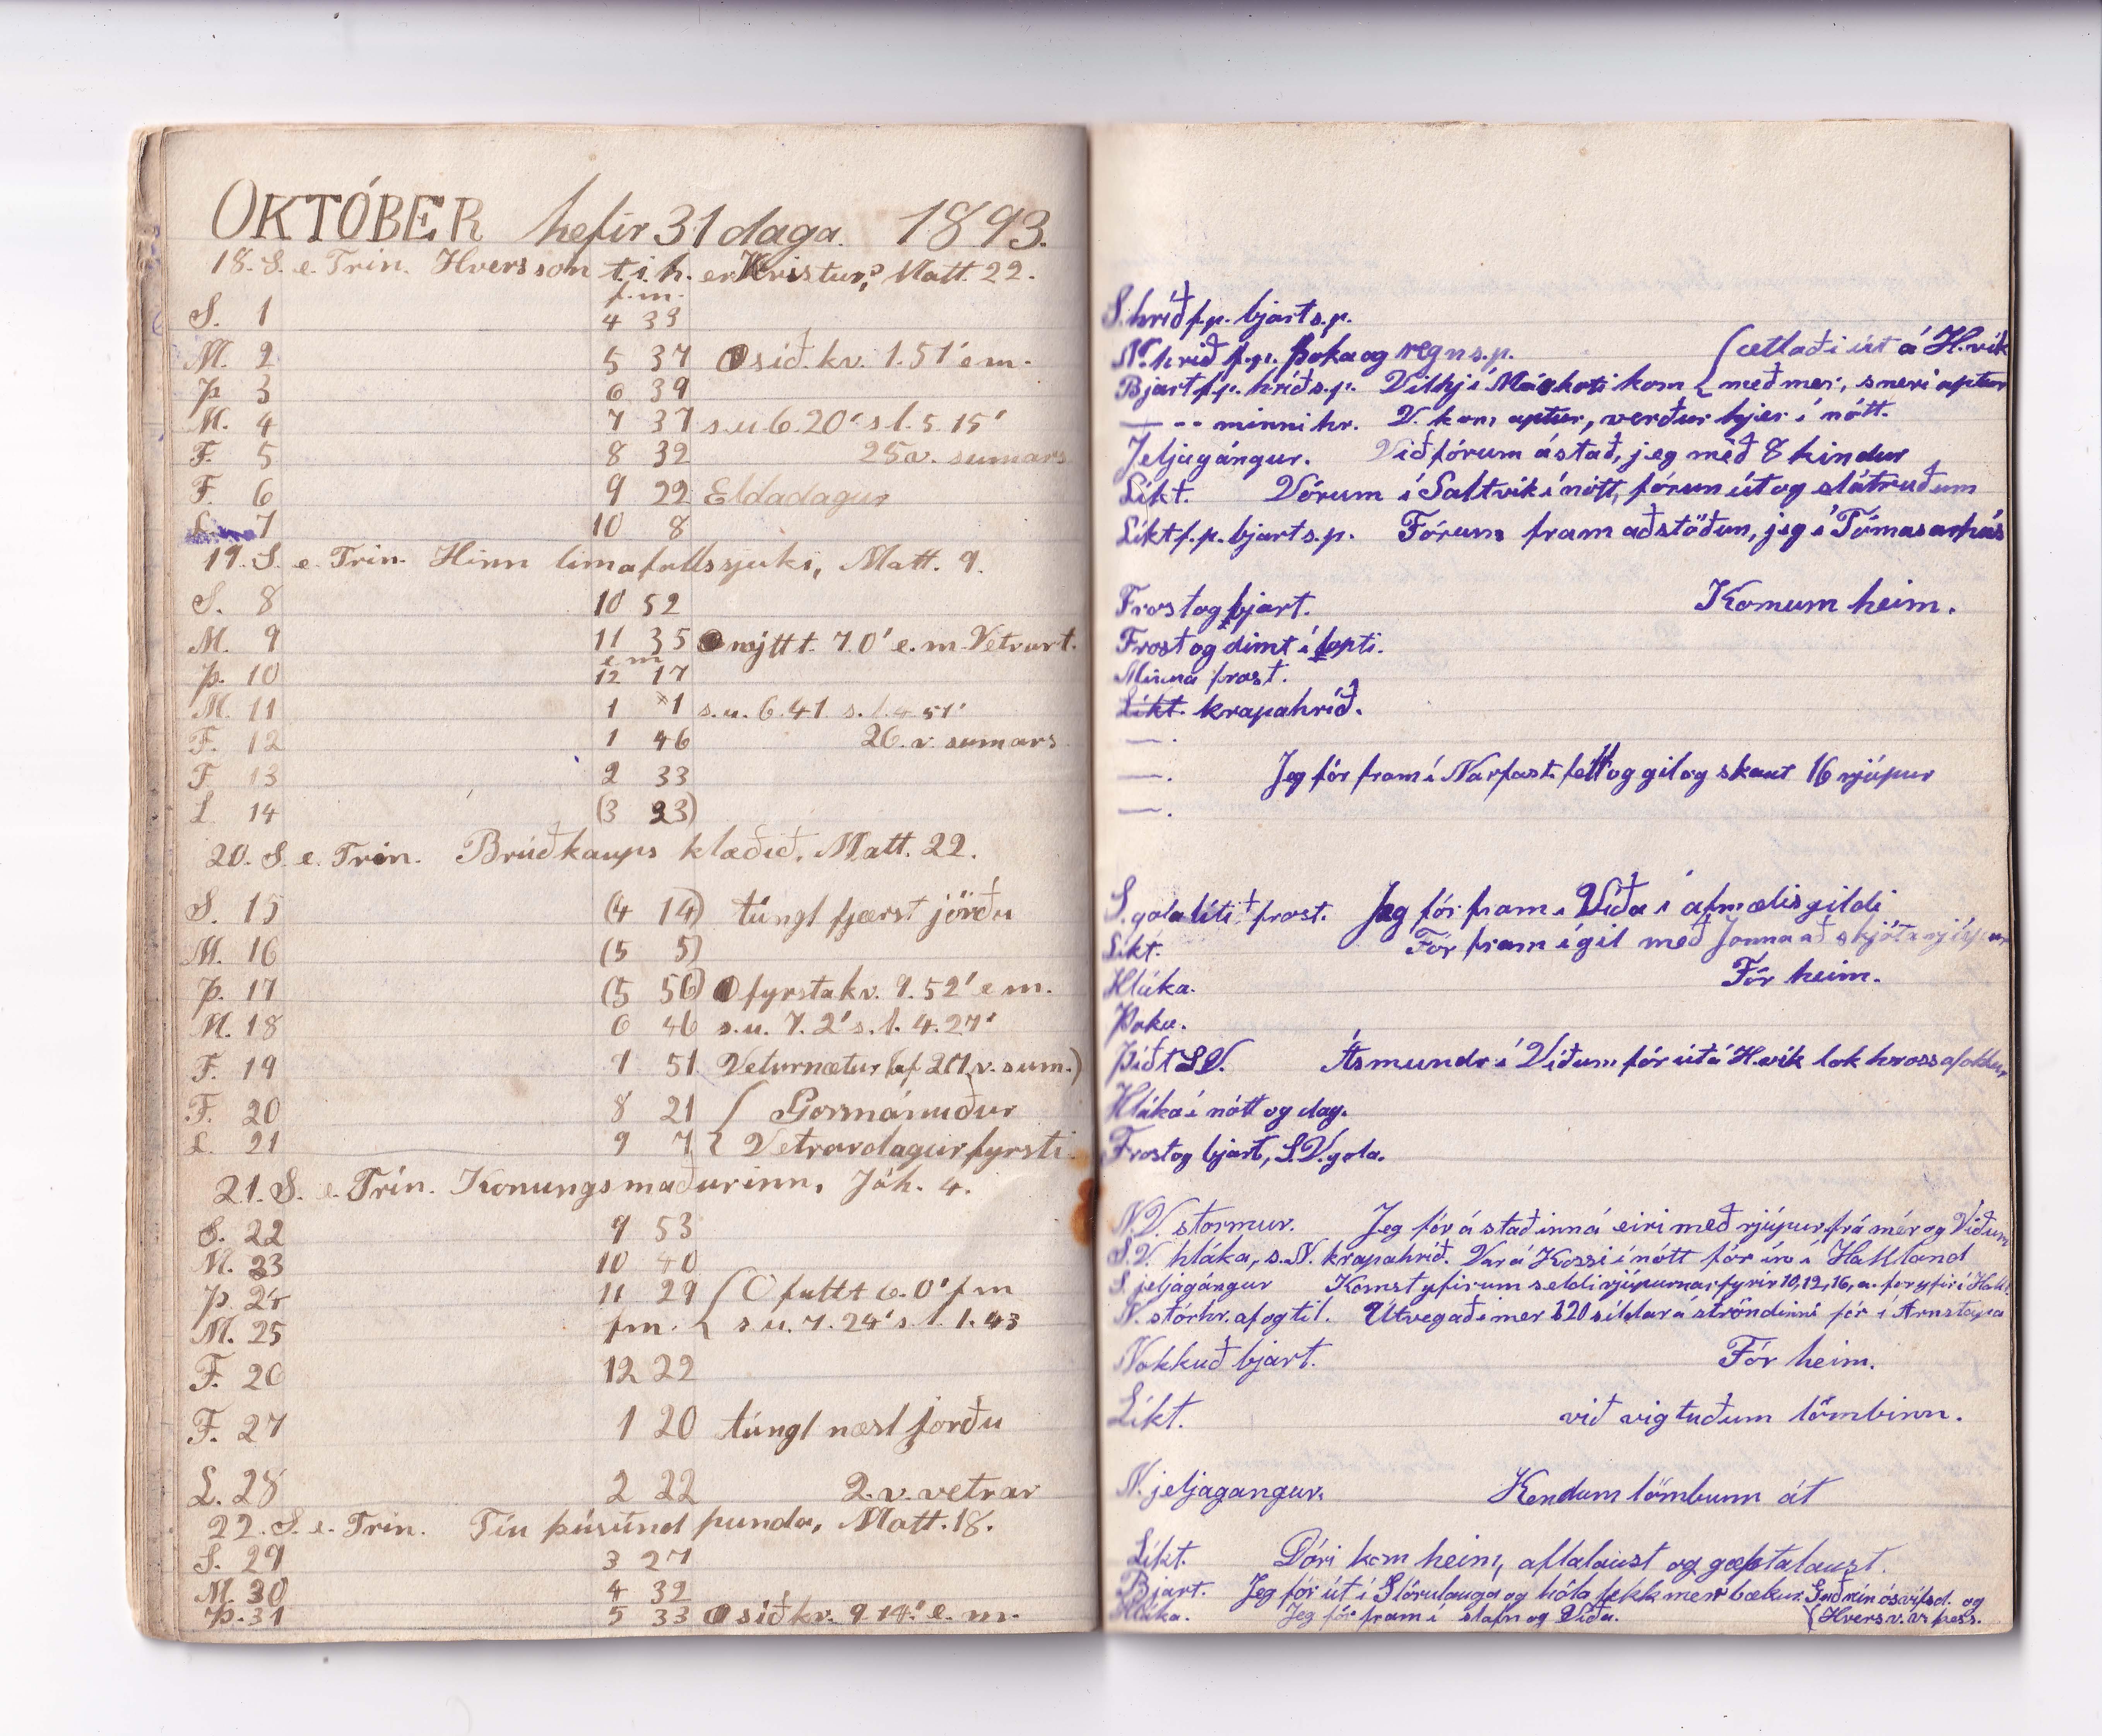 OKTÓBER hefir 31 daga. 1893.
18. S. e. Trin. Hvers son t. i. h. er Kristur? Matt. 22.
f. m.
S. 1 4 33
M. 2 5 37 síð. kv. 1. 51' e m.
Þ. 3 6 39
M. 4 7 37 s. u. 6. 20' s l. 5. 15'
F. 5 8 32 25. v. sumars
F. 6 9 22 Eldadagur
L. 7 10 8
19. S. e. Trin. Hinn limafallssjúki, Matt. 9.
S. 8 10 52
M. 9 11 35 nýtt t. 7. 0' e. m. Vetrart.
e m
Þ. 10 12 17
M. 11 1 1 s. u. 6. 41. s. l. 4 51'
F. 12 1 46 26. v. sumars
F. 13 2 33
L. 14 (3 23)
20. S. e. Trin. Brúðkaups klæðið. Matt. 22.
S. 15 (4 14) túngl fjærst jörðu
M. 16 (5 5)
Þ. 17 (5 56) fyrsta kv. 9. 52' e m.
M. 18 6 46 s. u. 7. 2' s. l. 4. 27'
F. 19 7 51 Veturnætur (af 27. v. sum.)
F. 20 8 21 { Gormánuður
L. 21 9 7 { Vetrardagur fyrsti
21. S. e. Trin. Konungsmaðurinn, Jóh. 4.
S. 22 9 53
M. 23 10 40
Þ. 24 11 29 { fullt 6. 0' f m
M. 25 fm. { s. u. 7. 24' s. l. 1. 43
F. 26 12 22
F. 27 1 20 túngl næst jörðu
L. 28 2 22 2. v. vetrar
22. S. e. Trin. Tíu þúsúnd punda, Matt. 18.
S. 29 3 27
M. 30 4 32
Þ. 31 5 33 síð kv. 9 14' e. m.
S. hríð f. p. bjart s. p.
N. hríð f. p. Þoka og regn s. p. { ætlaði út á H.vík
Bjart f. p. hríð s. p. Vilhj í Máskoti kom { með mer, sneri aptur
— -- minni hr. V. kom aptur, verður hjer í nótt.
Jeljagángur. Við fórum á stað, jeg með 8 kindur
Líkt. Vórum í Saltvík í nótt, fórum út og slátruðum
Líkt f. p. bjart s. p. Fórum fram að stöðum, jeg í Tómasarhús
Frost og bjart. Komum heim.
Frost og dimt í lopti.
Minna frost.
Líkt. krapahríð.
— .
— . Jeg fór fram í Narfast. fell og gil og skaut 16 rjúpur
— .
S. gola lítið frost. Jeg fór fram í Víða í afmælisgildi
Líkt. Fór fram í gil með Jonna að skjóta rjúpur
Hláka. Fór heim.
Þoka.
Þíðt S.V. Ásmundr í Víðum fór út á H.vík tok hross af okkur
Hláka í nótt og dag.
Frost og bjart, S.V. gola.
N.V. stormur. Jeg fór á stað inná eiri með rjúpur frá mér og Víðum
S.V. hláka, s. N. krapahríð. Var á Krossi í nótt fór inn í Hallland
S. jeljagángur Komst yfirum seldi rjúpurnar fyrir 10, 12, 16, a. fór yfir í Hall.
N. stórhr. af og til. Útvegaði mer 320 síldar á ströndinni fór í Arnstapa
Nokkuð bjart. Fór heim.
Líkt. við vigtuðum lömbinn.
N. jeljagangur. Kendum lömbunn át
Líkt. Dóri kom heim, aflalaust og gæptalaust.
Bjart. Jeg fór út í Stórulauga og hóla fekk mer bækur. Guðrún ósvífsd. og
Hláka. Jeg fór fram í stafn og Víða. { Hvers v. v. þess.